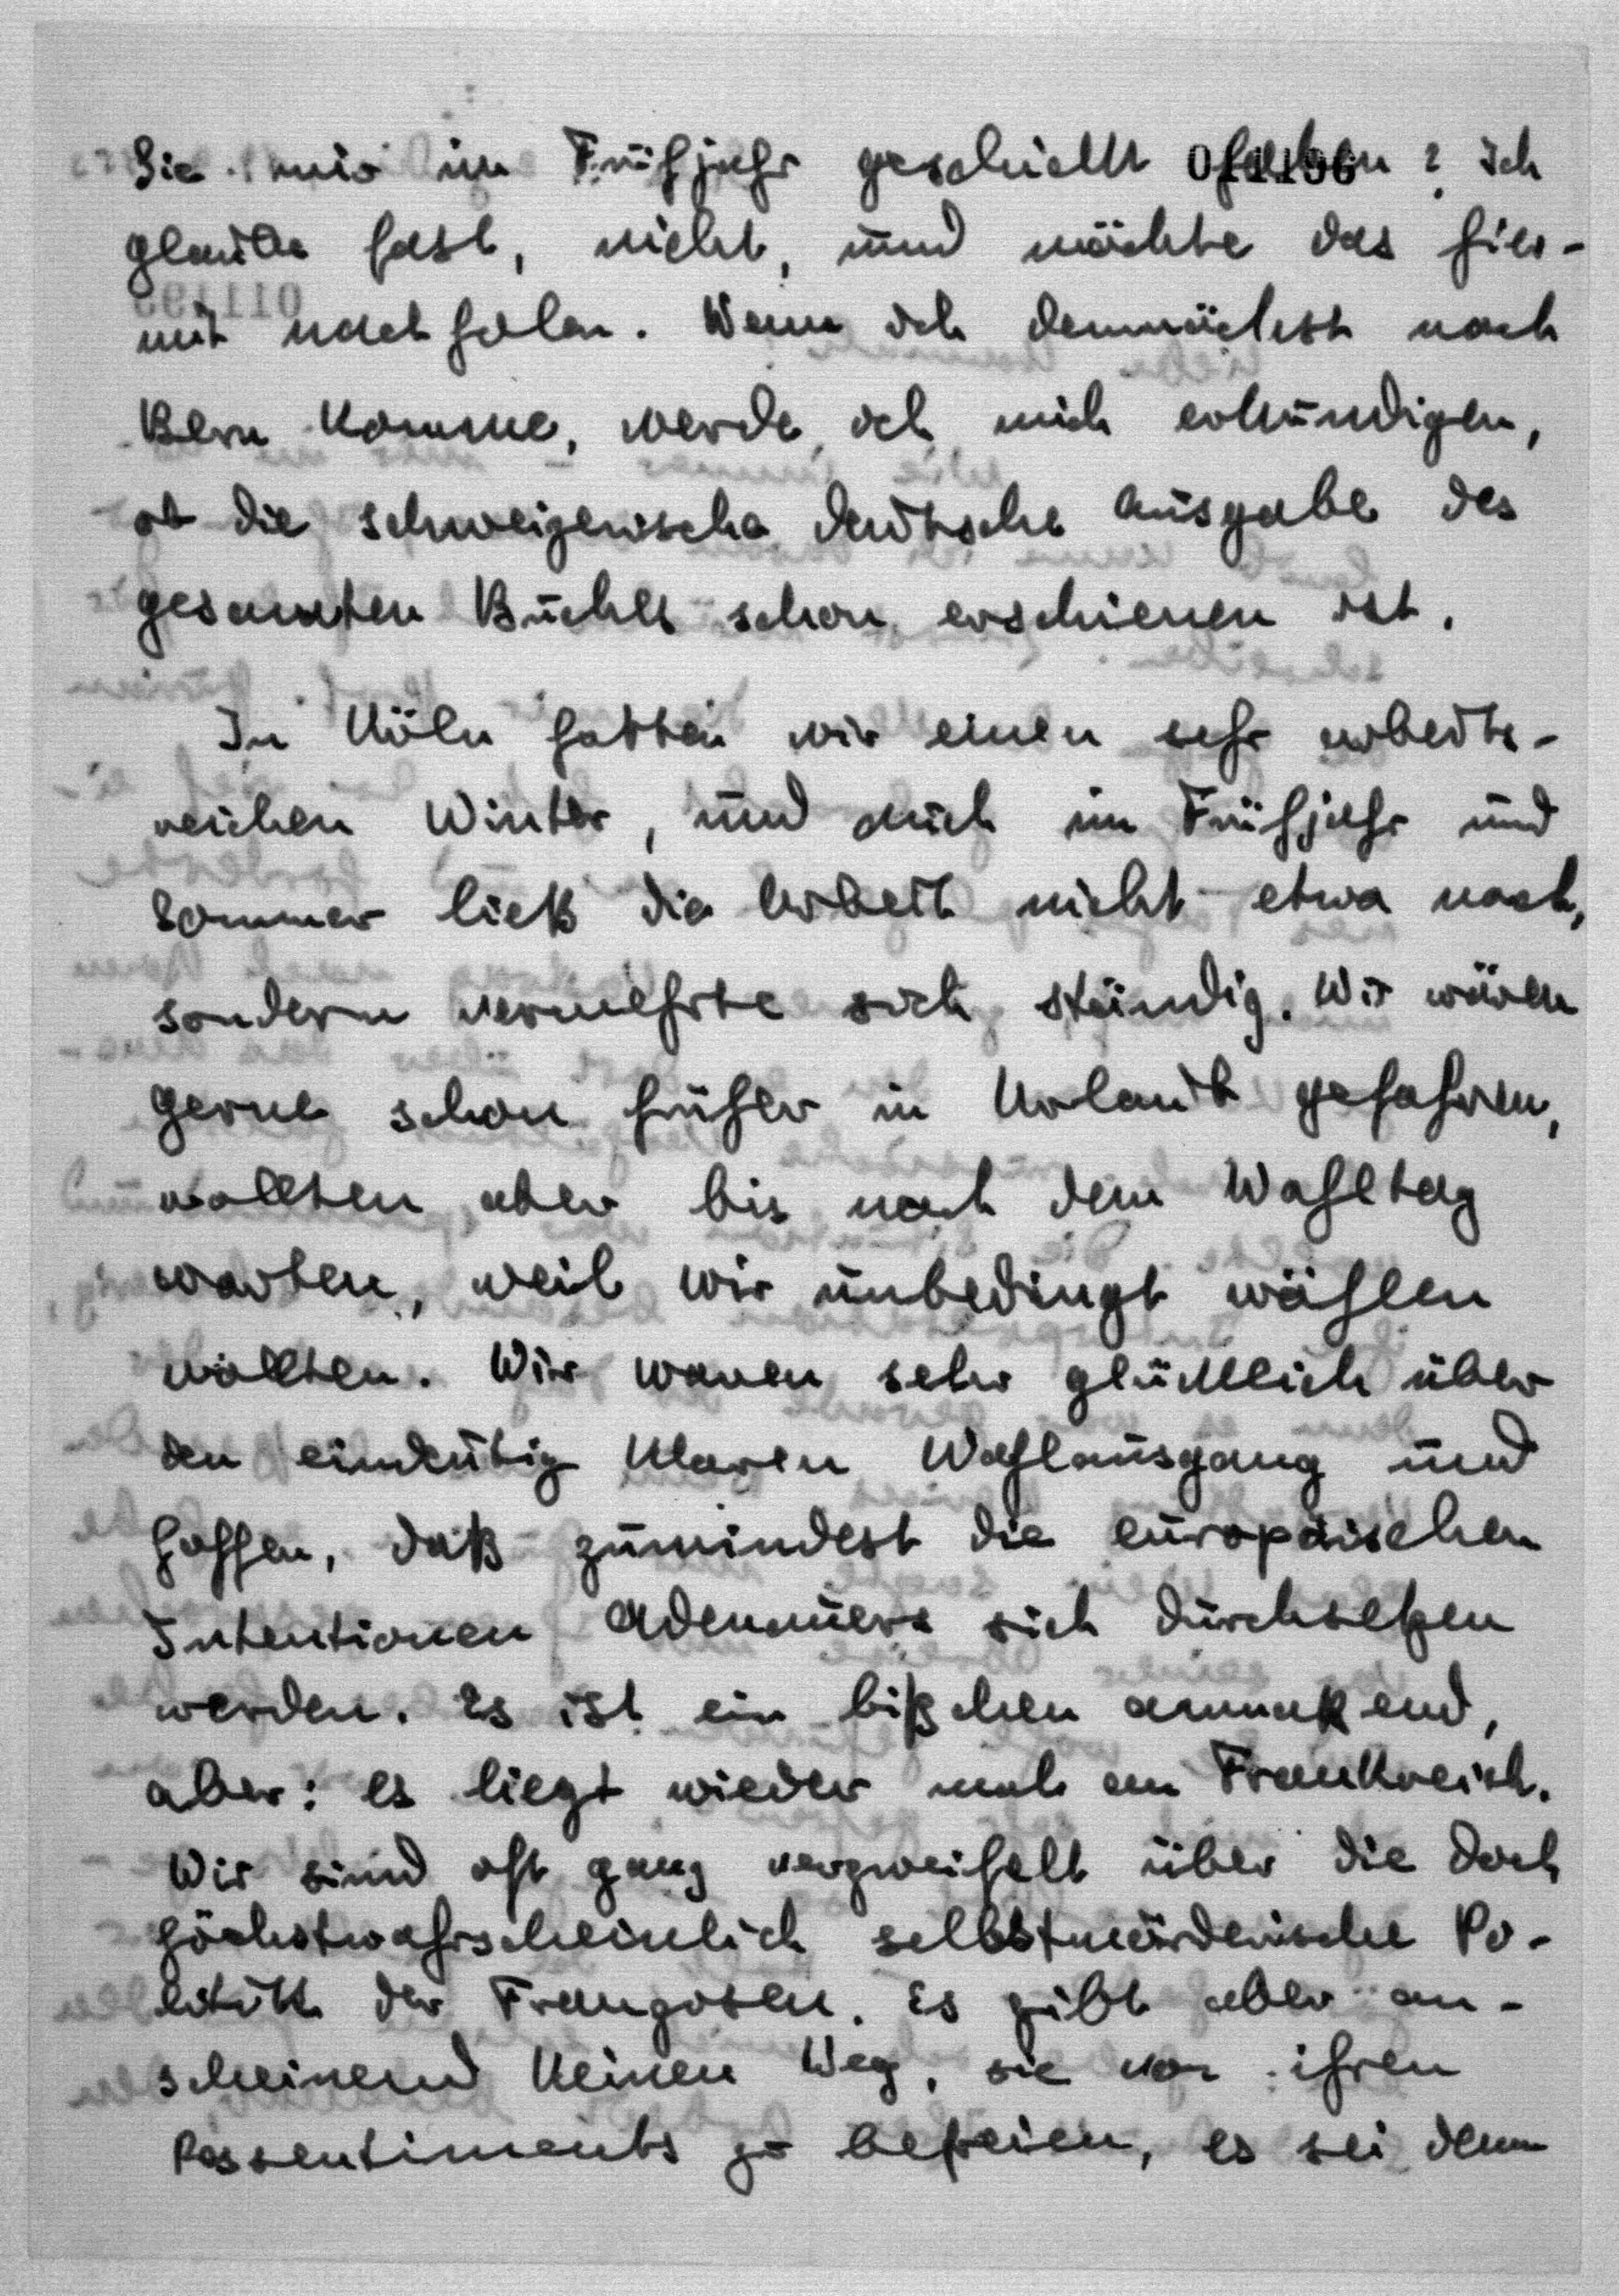 Sie mir im Frühjahr geschickt haben? Ich
011196
glaube fast, nicht, und möchte das hier-
mit nachholen. Wenn ich demnächst nach
Bern komme, werde ich mich erkundigen,
ob die schweizerische deutsche Ausgabe des
gesamten Buches schon erschienen ist.
In Köln hatten wir einen sehr arbeits-
reichen Winter, und auch im Frühjahr und
Sommer ließ die Arbeit nicht etwa nach,
sondern vermehrte sich ständig. Wir wären
gerne schon früher in Urlaub gefahren,
wollten aber bis nach dem Wahltag
warten, weil wir unbedingt wählen
wollten. Wir waren sehr glücklich über
den eindeutig klaren Wahlausgang und
hoffen, daß zumindest die europäischen
Intentionen Adenauers sich durchsetzen
werden. Es ist ein bißchen anmaßend,
aber: es liegt wieder mal an Frankreich.
Wir sind oft ganz verzweifelt über die doch
höchstwahrscheinlich selbstmörderische Po-
litik der Franzosen. Es gibt aber an-
scheinend keinen Weg, sie von ihren
Ressentiments zu befreien, es sei denn